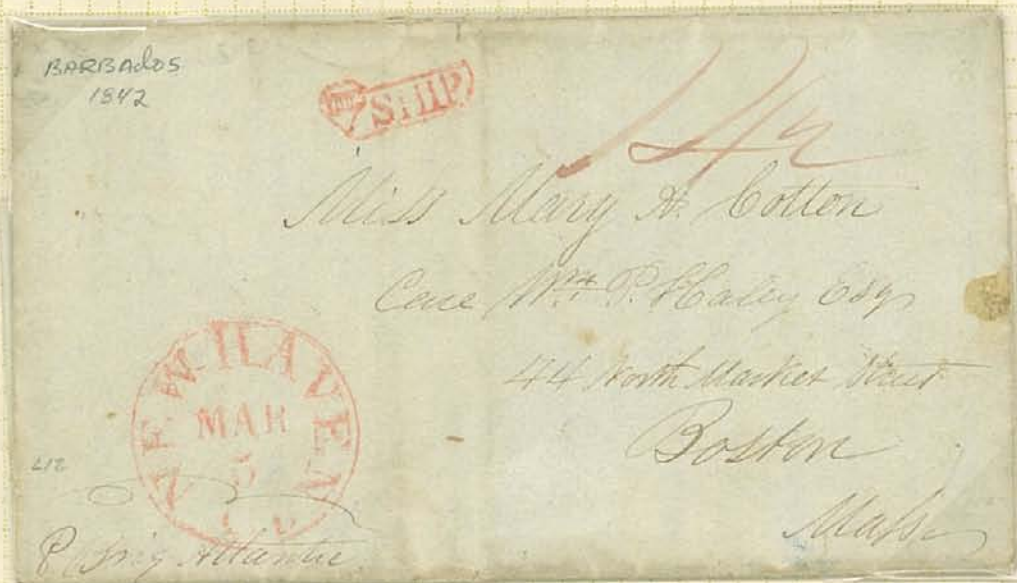 BARBADOS
1842
SHIP
14½
Miss Mary A. Cotton
Care Wm P. Haley Esqr
44 North Market Street
Boston
Mass
NEW HAVEN
MAR
5
CT
412
P. Brig Atlantic